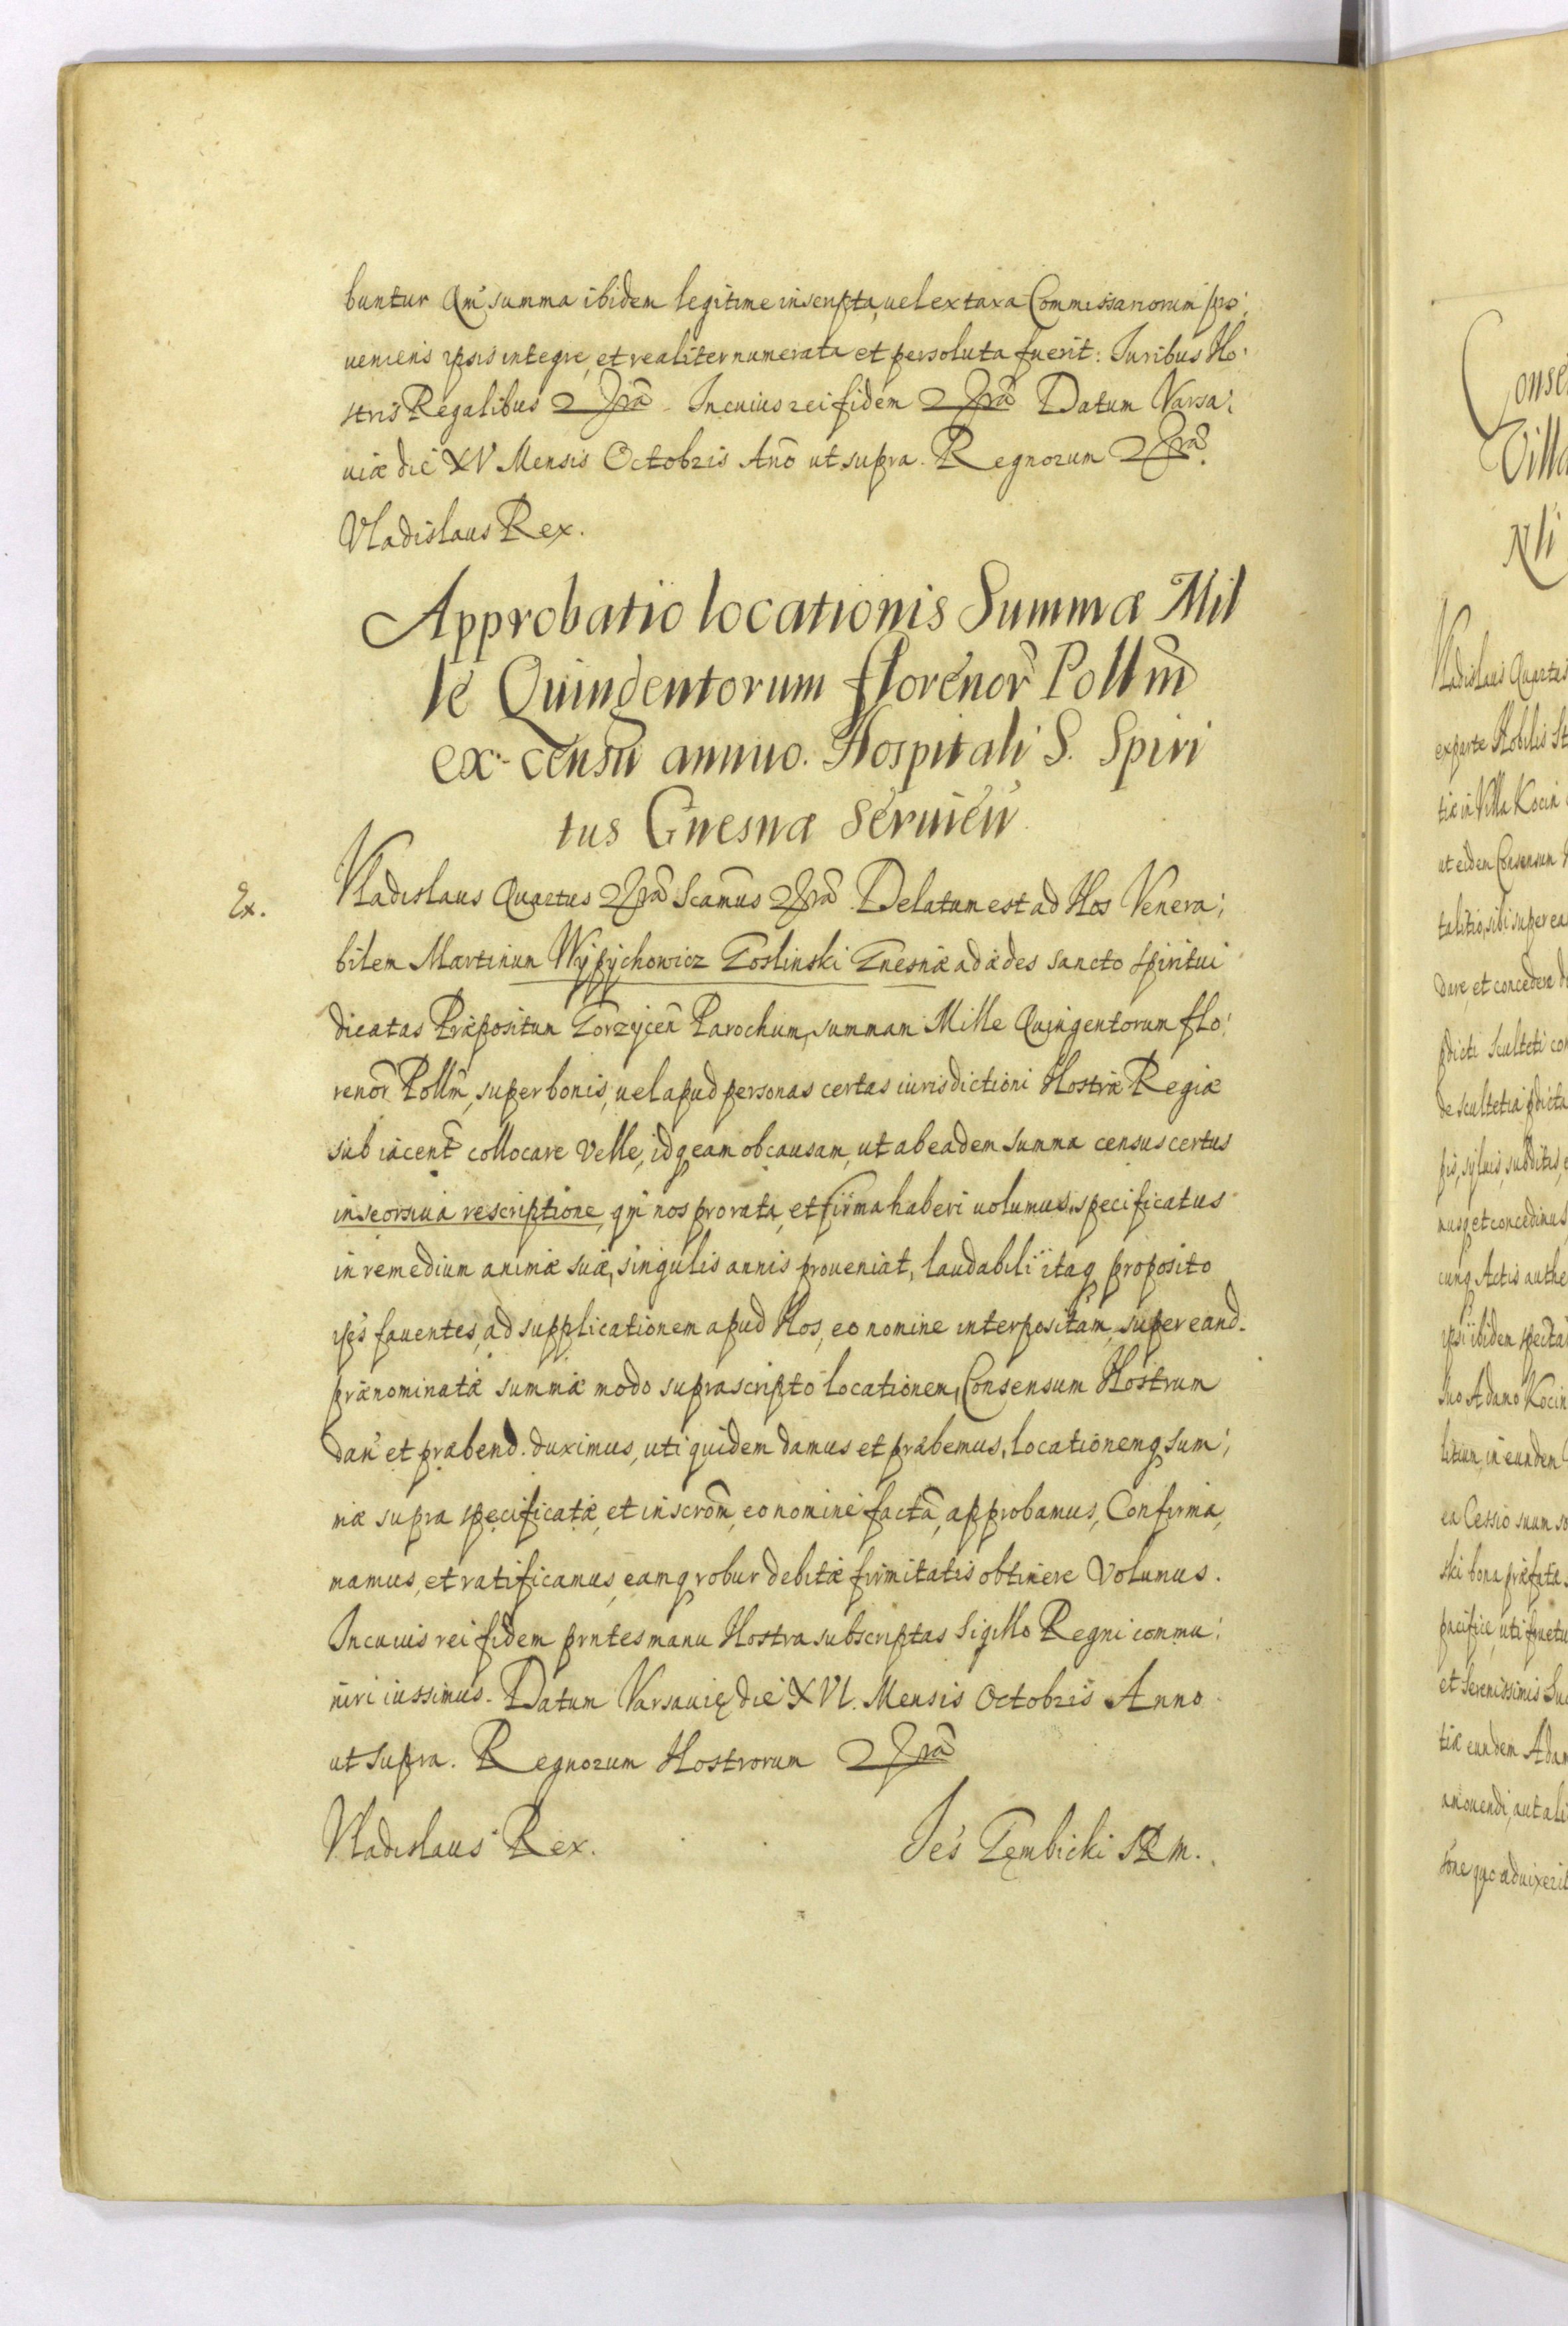 buntur Qm̄ summa ibidem legitime inscripta, uel ex taxa Commissariorum pro:
ueniens ipsis integre, et realiter numerata et persoluta fuerit: Iuribus No:
stris Regalibus In cuius rei fidem Datum Varsa:
uiæ die XV Mensis Octobris Año ut supra. Regnorum
Vladislaus Rex.
Approbatio locationis Summæ Mil
le Quingentorum florenor̃ Pollm̃
ex censu annuo Hospitali S. Spiri
tus Gnesnæ seruien̄
Ex.
Vladislaus Quartus Delatum est ad Nos Venera:
bilem Martinum Wÿpÿchowicz Goslinski Gnesnæ ad ædes sancto spiritui
dicatas Præpositum Gorzycen̄ Parochum, summam Mille Quingentorum flo:
renor̃ Pollm̃, super bonis, uel apud personas certas iurisdictioni Nostræ Regiæ
sub iacent̃ collocare Velle, idq eam ob causam, ut ab eadem summa census certus
in seorsiua rescriptione, qm̄ nos pro rata, et firma haberi uolumus, specificatus
in remedium animæ suæ, singulis annis proueniat, laudabili itaq proposito
ips̃ fauentes, ad supplicationem apud Nos, eo nomine interpositam, super eand.
prænominatæ summæ modo suprascripto locationem, Consensum Nostrum
dan̄ et præbend. duximus, uti quidem damus et præbemus, locationemq sum:
mæ supra specificatæ, et inscrõm, eo nomine factã, approbamus, Confirma,
mamus, et ratificamus, eamq robur debitæ firmitatis obtinere Volumus.
In cuius rei fidem prntes manu Nostra subscriptas Sigillo Regni commu:
niri iussimus. Datum Varsauię die XVI. Mensis Octobris Anno
ut supra. Regnorum Nostrorum
Vladislaus Rex. Gembicki
Conse
Villa
Vladislaus Quartus
ex parte Nobilis St
tiæ in Villa Kocin
ut eidem Consensum
talitio, sibi super ea
Dare et concedere d
pdicti Sculteti con
de scultetia pdicta
pis, syluis, subditis,
musq et concedimus
cunq Actis authe
ipsi ibidem specta
suo Adamo Kocin
litium, in eundem
ea Cessio suum so
ski bona præfata
pacifice, uti fruetu
et Serenissimis Su
tiæ eundem Adam
amouendi, aut ali
ione quo aduixerit